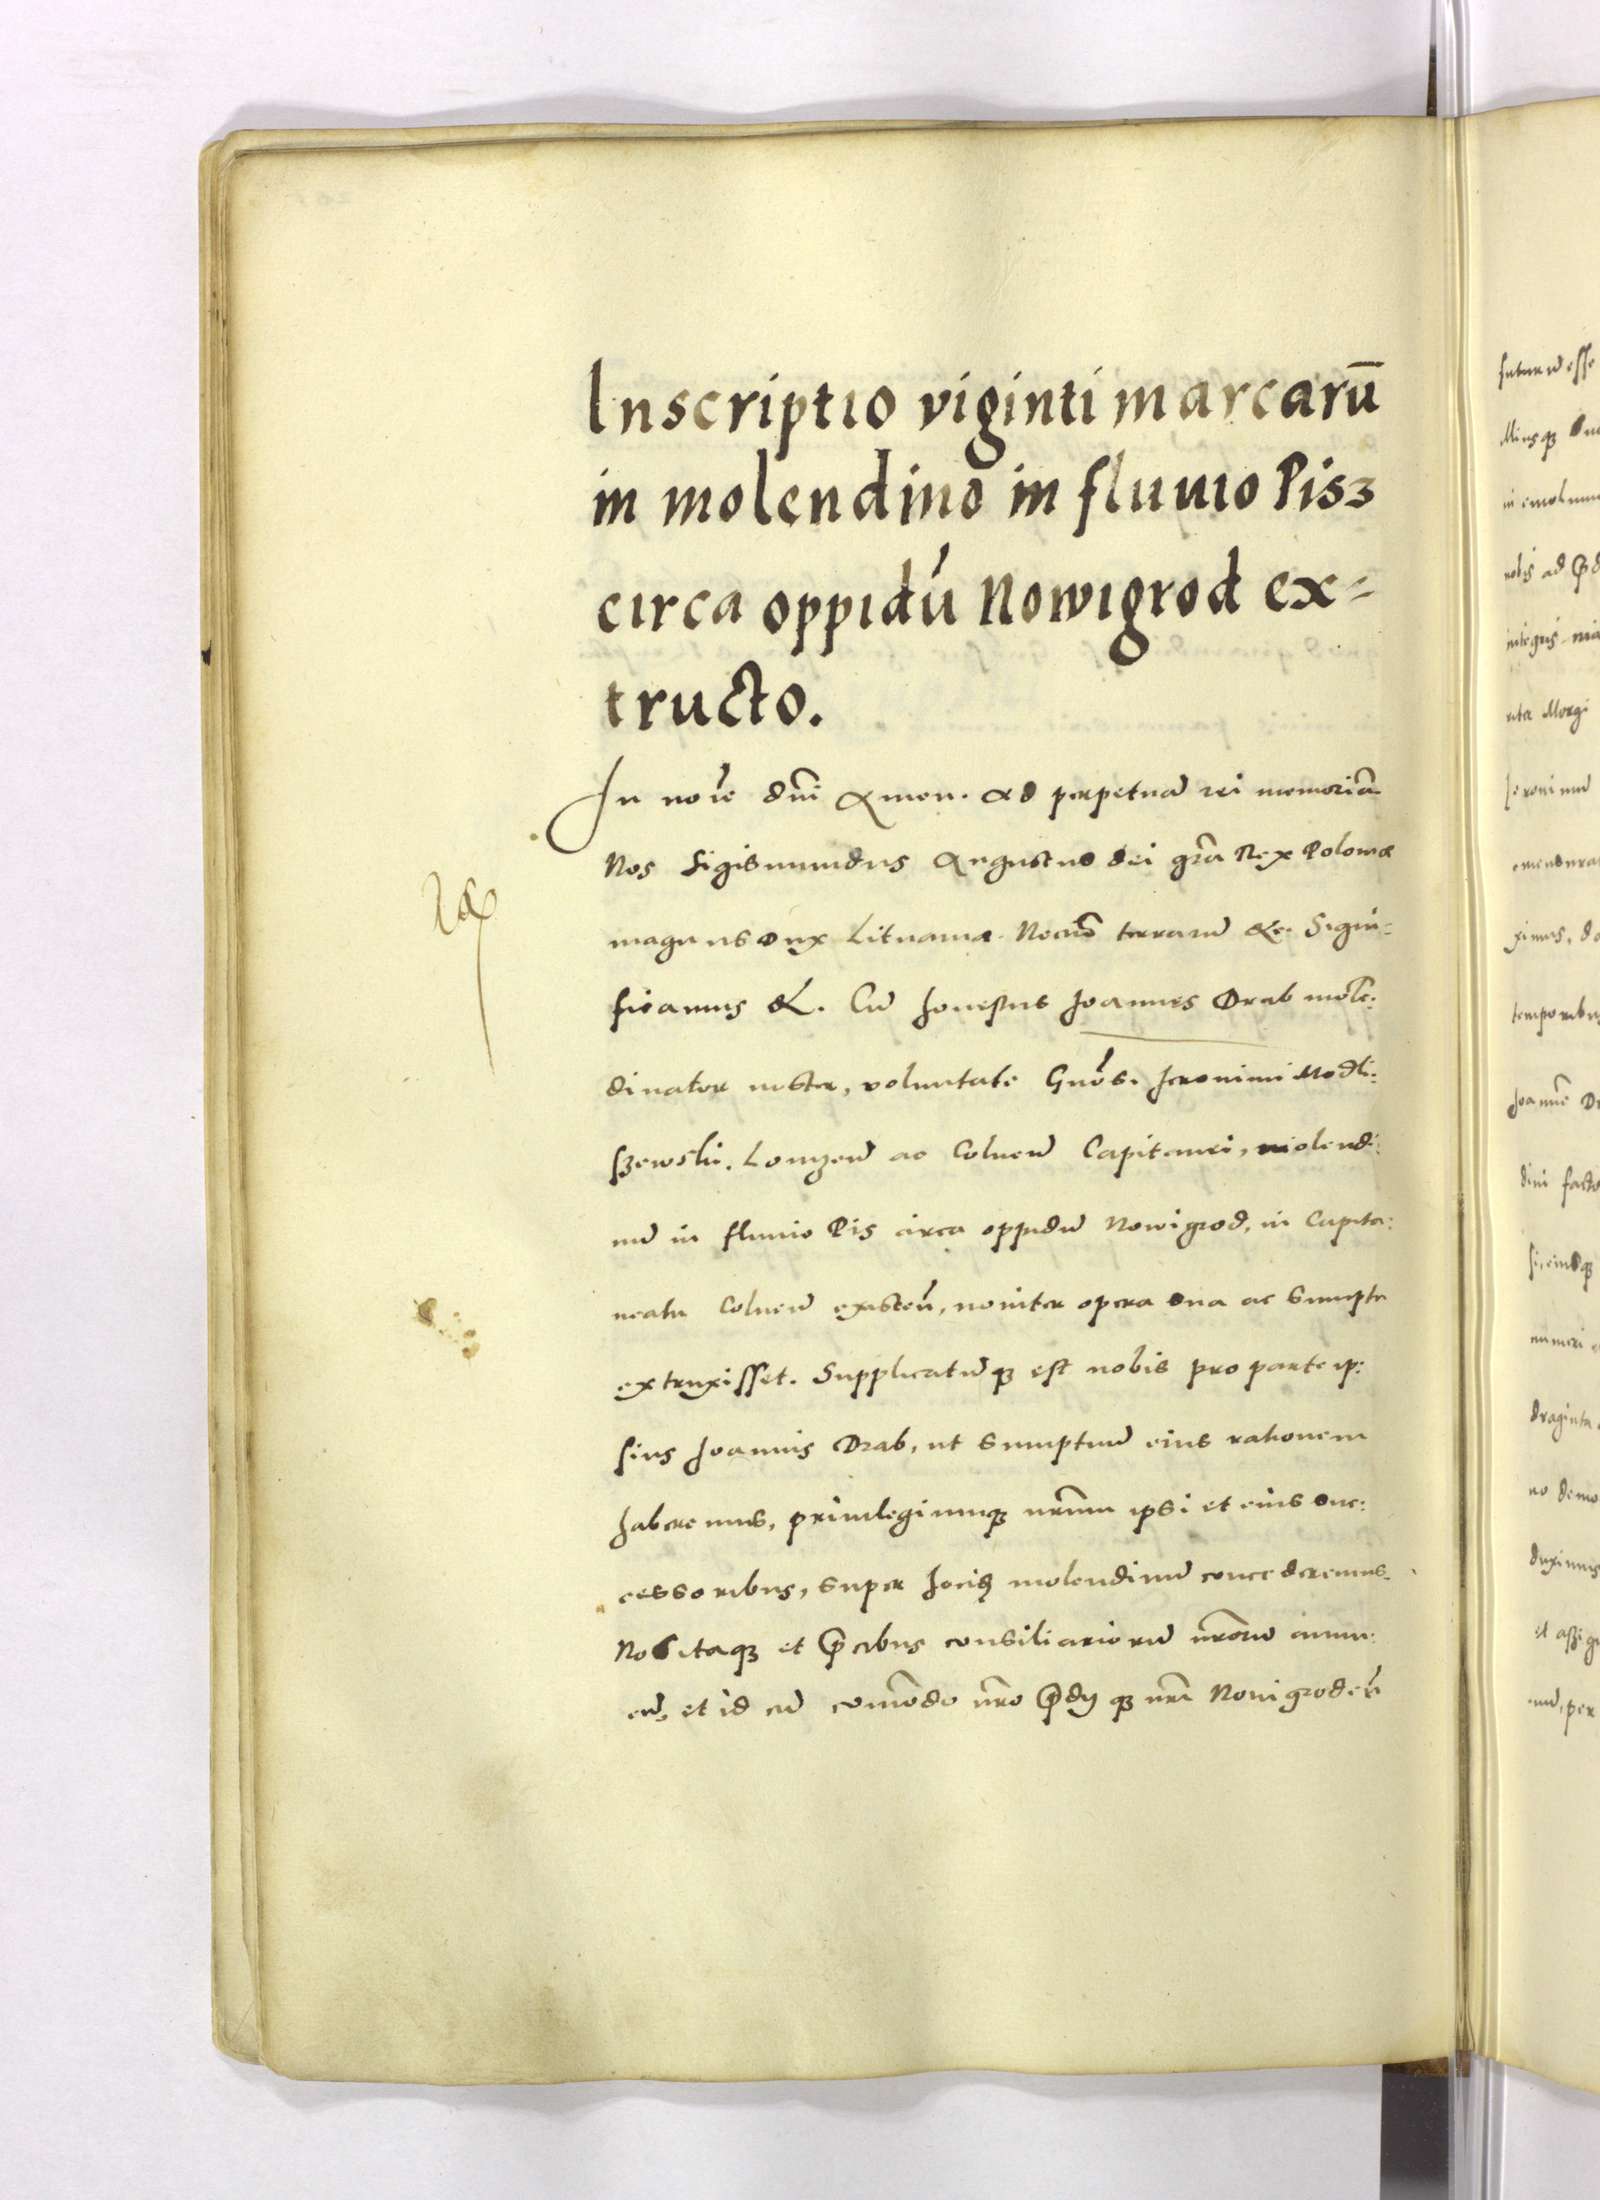 Inscriptio viginti marcarū
in molendino in fluuio Pisz
circa oppidú Nowigrod ex=
tructo.
In noīe dnī Amen. Ad perpetuā rei memoriā
Nos Sigismundus Augustus dei grā Rex Poloniæ
magnus Dux Lituaniæ Necnō terrarū &c. Signi:
ficamus &. Cū honestus Joannes Drab mole:
dinator noster, voluntate Gnōs. Jeronimi Modli:
szewski. Lomzeñ ac Colneñ Capitanei, molendi:
nū in fluuio Pis circa oppidū Nowigrod, in Capita:
neatu Colneñ existeñ, nouiter opera sua ac sumptu
extruxisset. Supplicatūqȝ est nobis pro parte ip:
sius Joannis Drab, ut sumptuū eius rationem
haberemus, priuilegiumqȝ nrūm ipsi et eius suc:
cessoribus, super hociꝫ molendinū concederemus.
Nos itaqȝ et p̄cibus consiliariorū nrōrū annu:
eñ, et id cū comōdo nrō p̄dijqȝ nrī Nouigrodeñ
futurū esse
in emolum
nobis ad
integris
Jeronimū
temporibus
Joanne Dr
dini facto
numeri
draginta
duximus